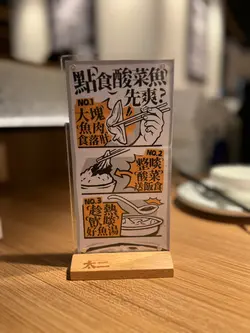 點食酸菜魚
先爽?
NO.1
大塊
魚肉
食落肚
NO.2
啖啖
酸菜
送飯食
NO.3
趁熱
飲啖
好魚湯
太二